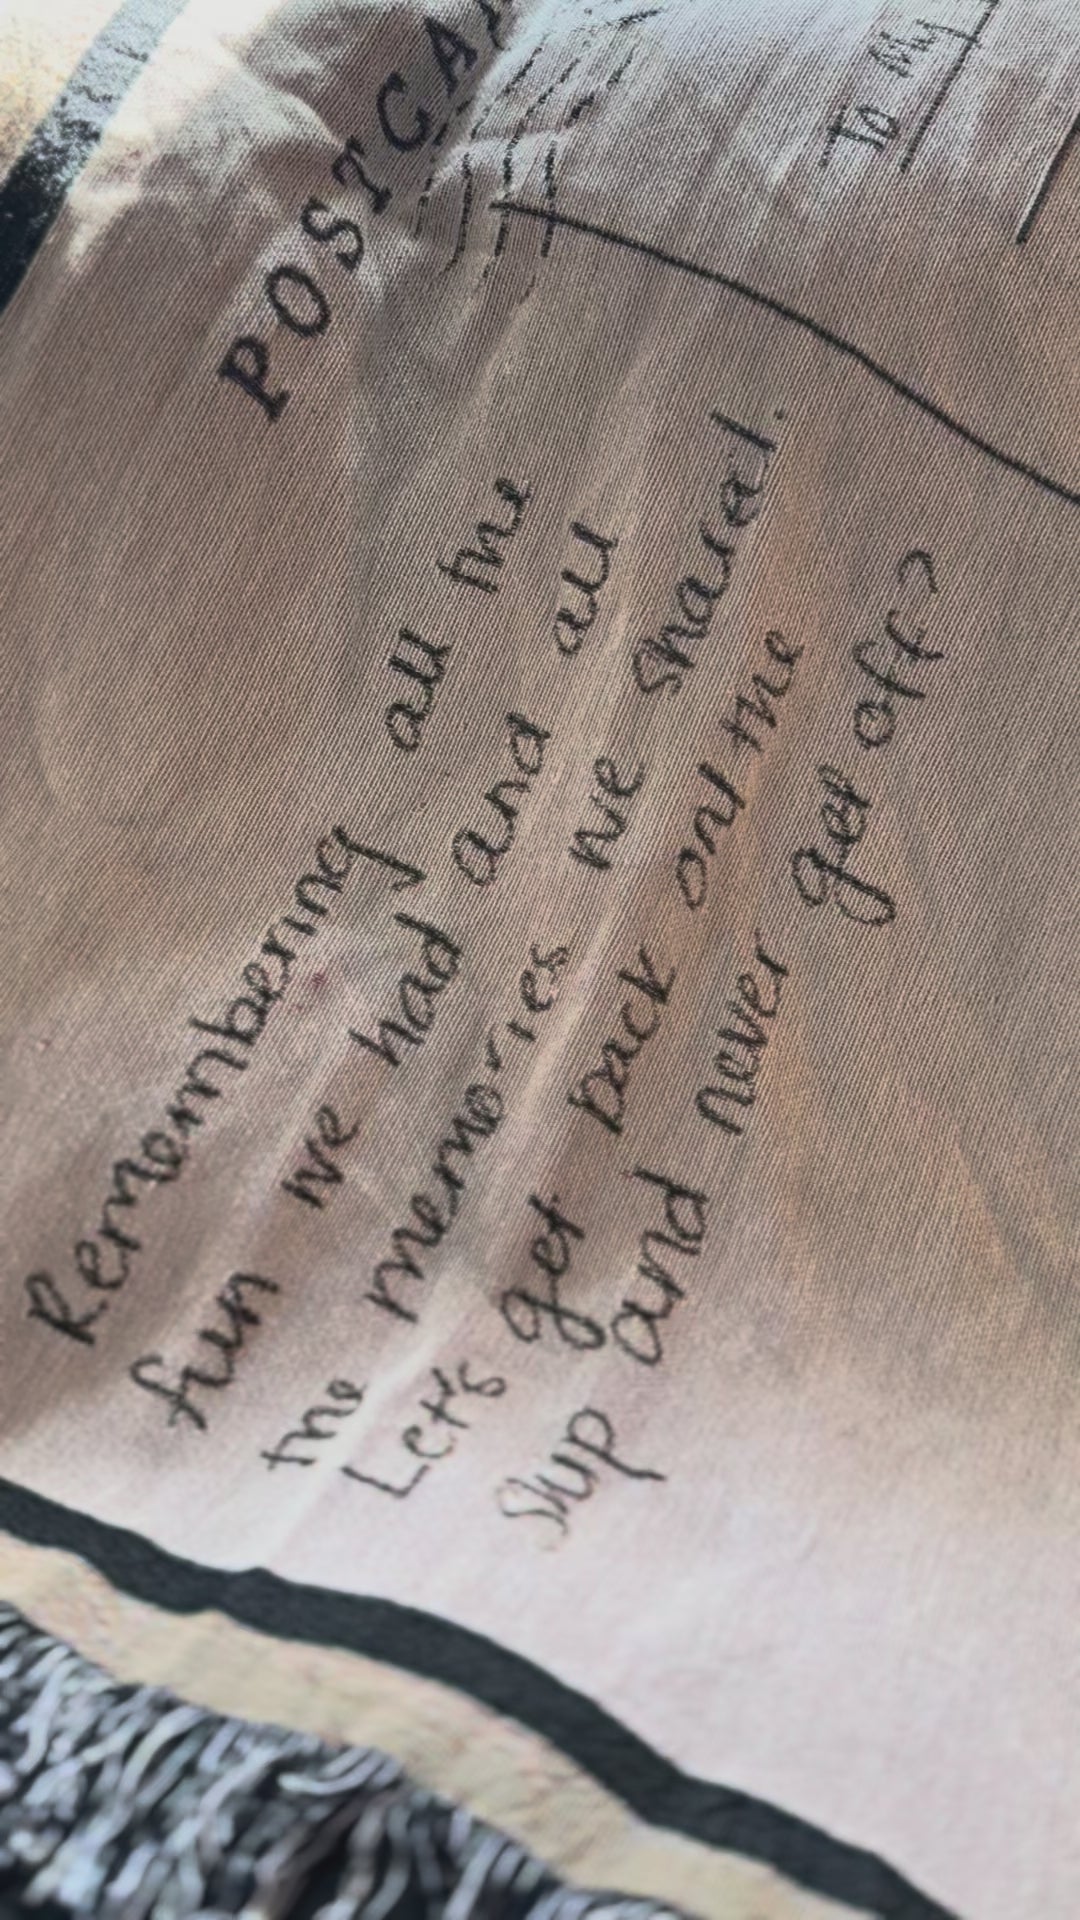 POSTCA
To My
Remembering all the
fun we had and all
the memories we shared.
Let's get back on the
ship and never get off?